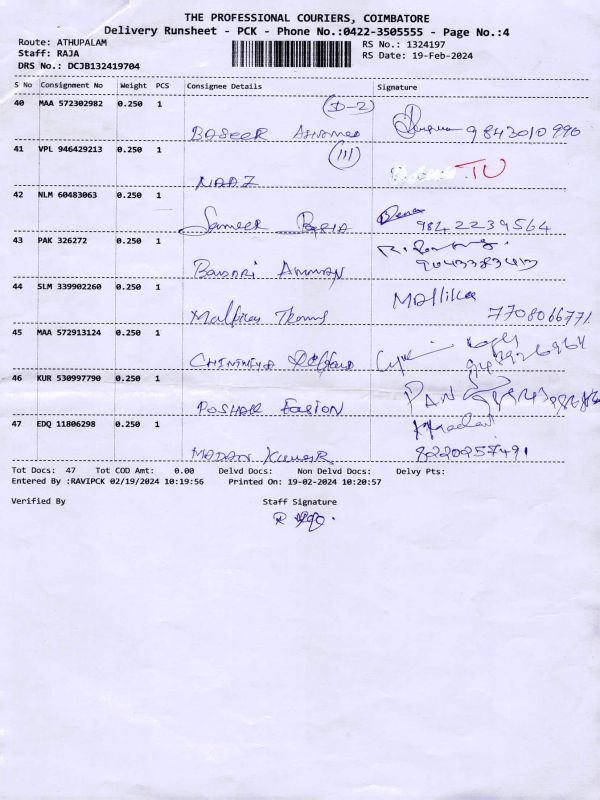 THE PROFESSIONAL COURIERS, COIMBATORE
Delivery Runsheet - PCK - Phone No.:0422-3505555 - Page No.:4
Route: ATHUPALAM
RS No.: 1324197
Staff: RAJA
RS Date: 19-Feb-2024
DRS No.: DCJB132419704
S No Consignment No Weight PCS Consignee Details Signature
40 MAA 572302982 0.250 1 (D-2)
BASEER AHAMED 9843010990
41 VPL 946429213 0.250 1 (111)
NAAZ TU
42 NLM 60483063 0.250 1
Sameer 9842239564
43 PAK 326272 0.250 1
Bannari AMMAN 9043383413
44 SLM 339902260 0.250 1 Mallika
Mallika 7708066771
45 MAA 572913124 0.250 1
46 KUR 530997790 0.250 1 PAN
POSHAK FASION
47 EDQ 11806298 0.250 1
MADAN KUMAR 8220257491
Tot Docs: 47 Tot COD Amt: 0.00 Delvd Docs: Non Delvd Docs: Delvy Pts:
Entered By :RAVIPCK 02/19/2024 10:19:56 Printed On: 19-02-2024 10:20:57
Verified By Staff Signature